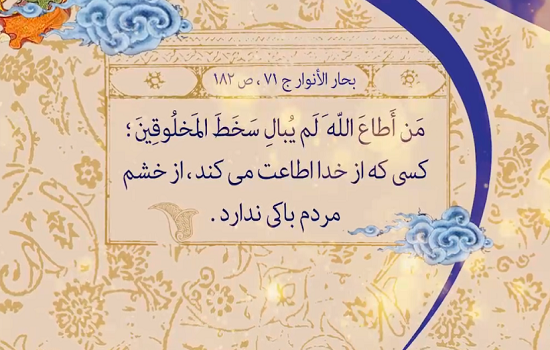 بحار الأنوار ج ۷۱ ، ص ۱۸۲
مَن أَطاعَ اللّهَ لَم يُبالِ سَخَطَ المَخلُوقِينَ ؛
کسی که از خدا اطاعت می کند ، از خشم
مردم باکی ندارد .